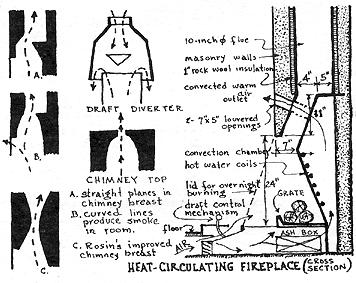 A.
B.
C.
DRAFT DIVERTER
CHIMNEY TOP
A. straight planes in
chimney breast
B. curved lines
produce smoke
in room.
C. Rosin's improved
chimney breast
10-inch φ flue
masonry walls
1" rock wool insulation
convected warm
air
outlet
2- 7"x5" louvered
openings
Convection chamber
hot water coils
lid for overnight
burning
draft control
mechanism
floor
AIR
4"
5"
11"
7"
24"
GRATE
ASH BOX
HEAT-CIRCULATING FIREPLACE (CROSS SECTION)